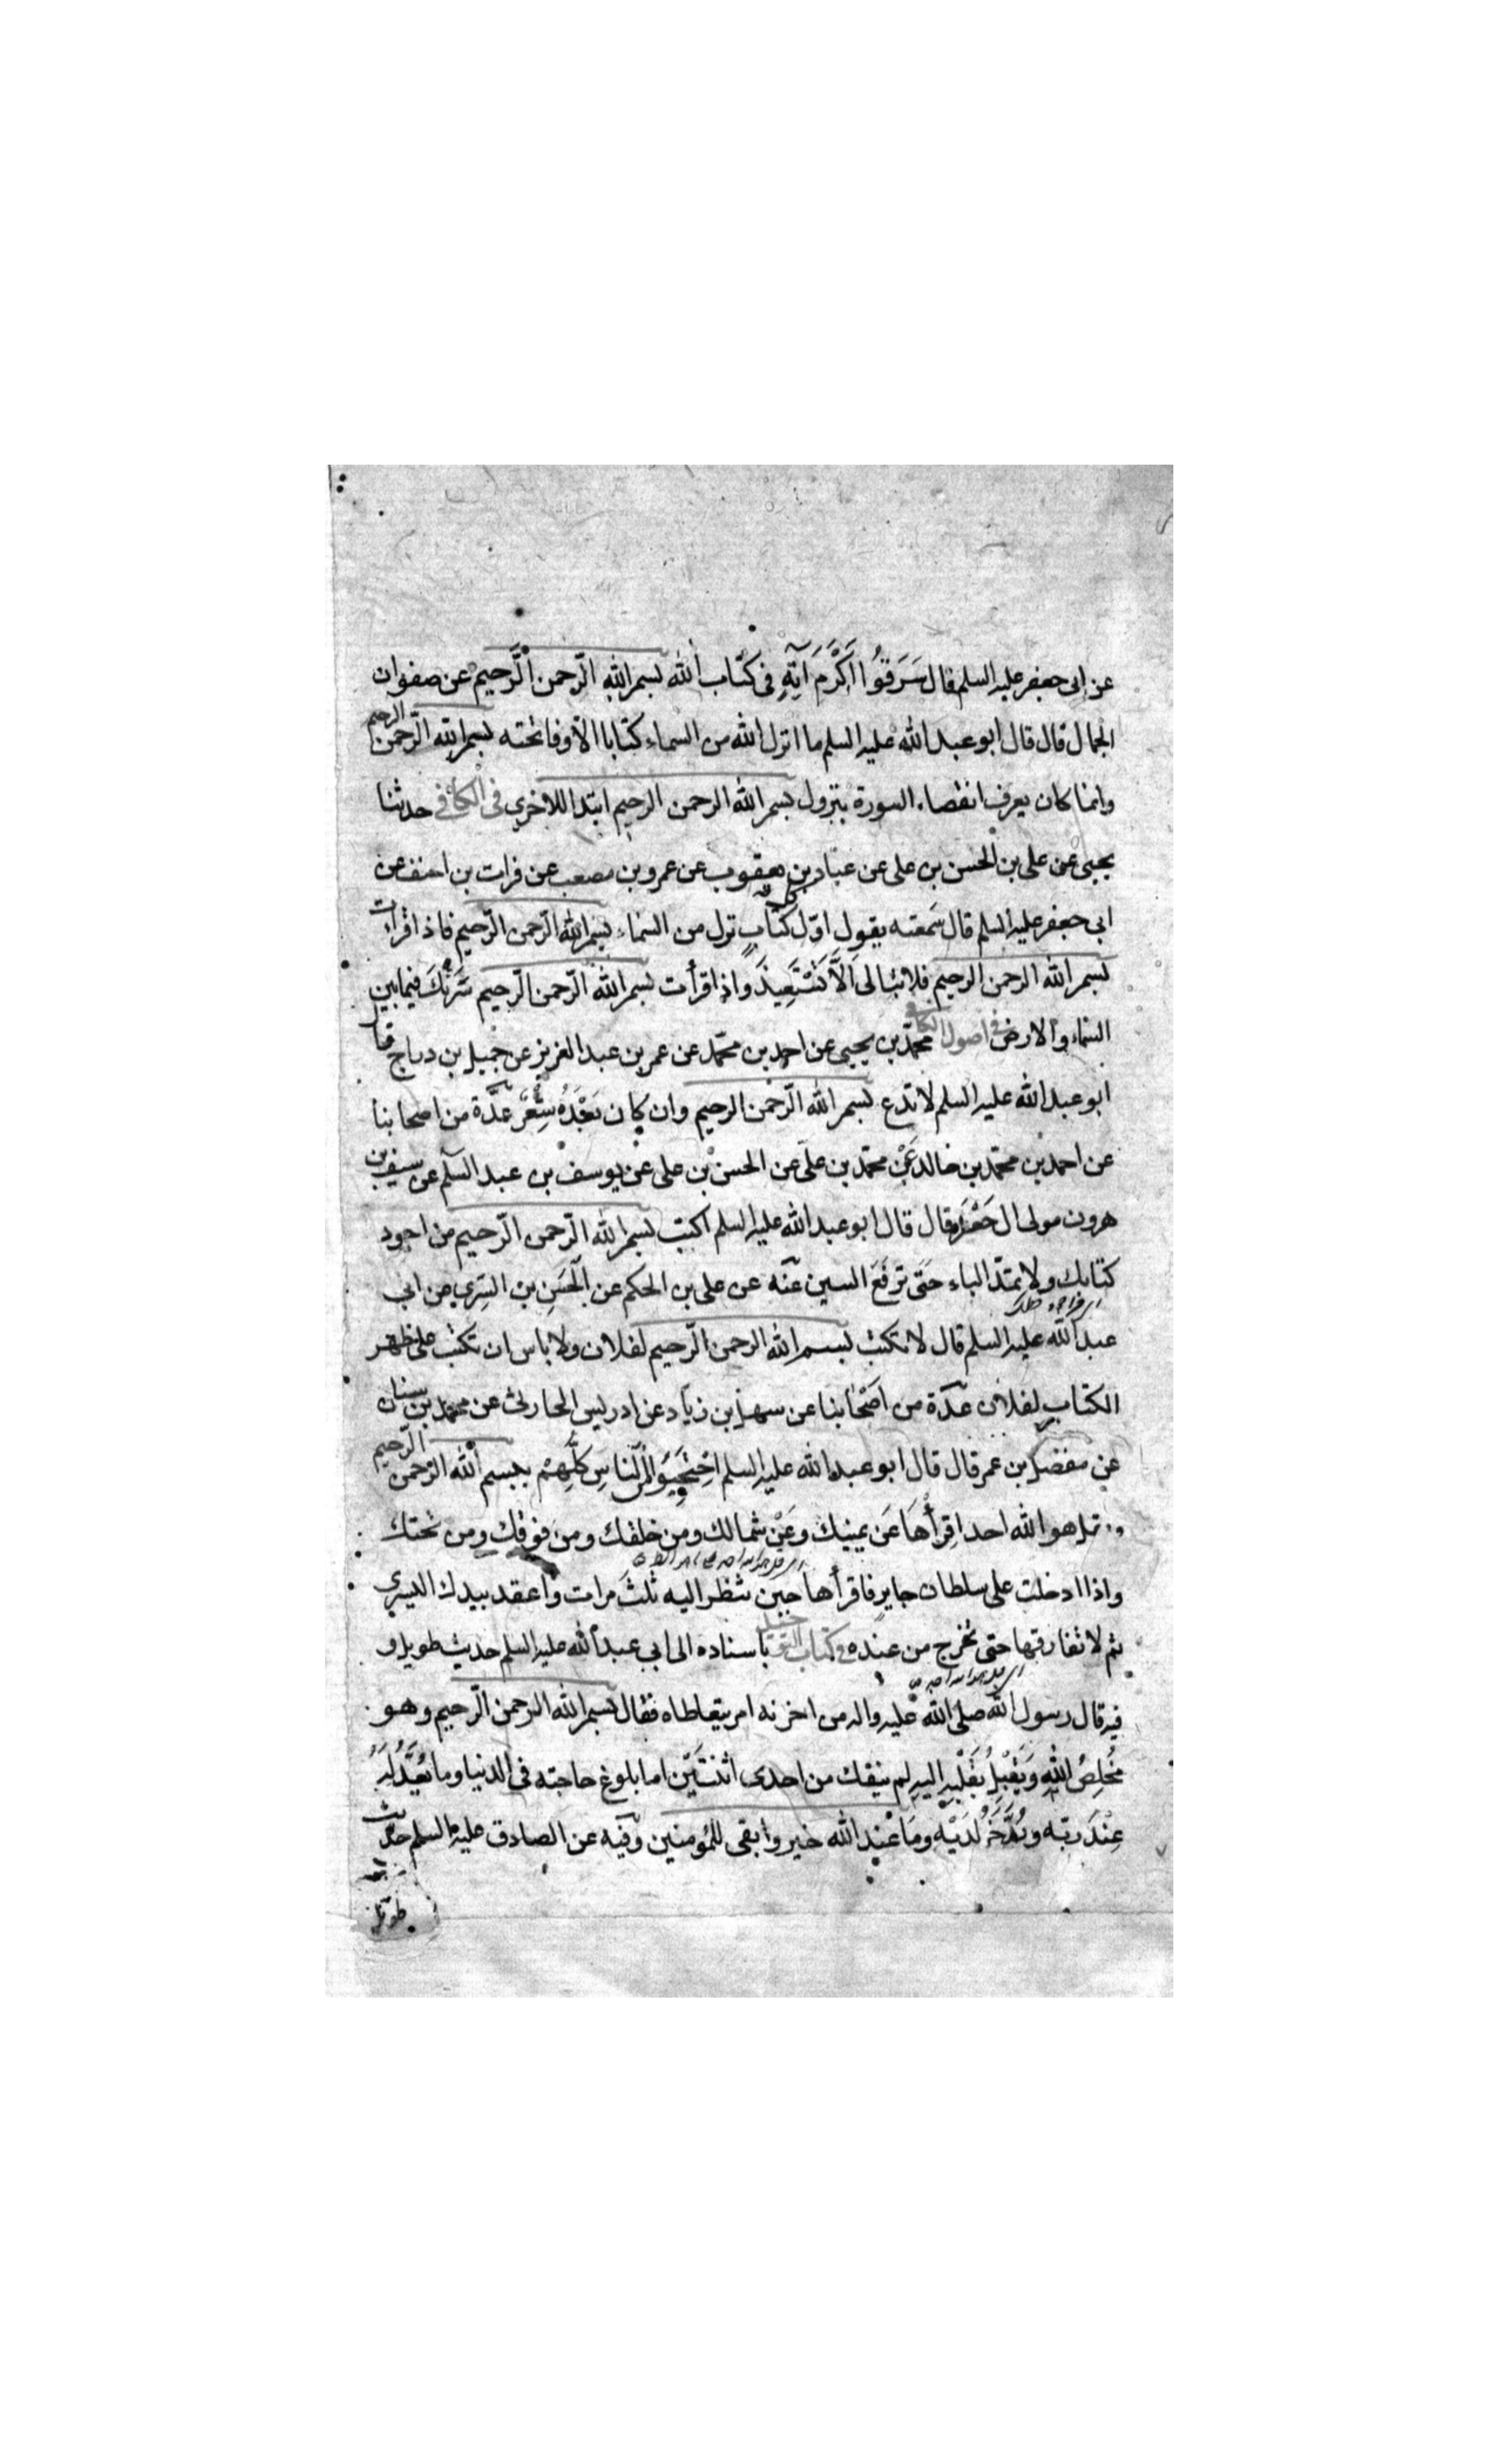 عن ابى جعفر عليه السلم قال سَرَقُوا اَكْرَمَ آيَةٍ فى كتاب الله بسم الله الرّحمن الرّحيم عن صفوان
الجمال قال قال ابو عبد الله عليه السلم ما انزل الله من السماء كتابا الاّ وفاتحته بسم الله الرّحمن الرحيم
وانما كان يعرف انقضاء السورة بنزول بسم الله الرحمن الرحيم ابتدا للاخرى فى الكافى حدثنا
يحيى عن على بن الحسن بن على عن عباد بن يعقوب عن عمرو بن مصعب عن فرات بن احنف عن
ابى جعفر عليه السلم قال سمعته يقول اوّل كل كتاب نزل من السّماء بسم الله الرّحمن الرّحيم فاذا قرأت
بسم الله الرحمن الرحيم فلا تبالى اَلاَّ تَسْتَعِيذَ واذا قرأت بسم الله الرّحمن الرّحيم سَتَرَتْكَ فيما بين
السّماء والارض فى اصول الكافى محمّد بن يحيى عن احمد بن محمّد عن عمر بن عبد العزيز عن جميل بن دراج قال
ابو عبد الله عليه السلم لا تدع بسم الله الرّحمن الرحيم وان كان بَعْدَهُ شِعْرٌ عدّة من اصحابنا
عن احمد بن محمّد بن خالد عَنْ محمّد بن على عن الحسن بن على عن يوسف بن عبد السّلم عن سيف بن
هرون مولى ال جَعْدَة قال قال ابو عبد الله عليه السلم اكتب بسم الله الرّحمن الرّحيم من اجود
كتابك ولا تمدّ الباء حَتّى ترفَعَ السين عنه عن على بن الحكم عن الحَسَنِ بن السّرِىِ عن ابى
عبد الله عليه السلم قال لا تكتب بسم الله الرحمن الرّحيم لفلان ولا باس ان تكتب على ظهر
الكتاب لفلان عدّة من اَصْحابنا عن سهل بن زياد عن ادريس الحارثى عن محمد بن سنان
عن مفضل بن عمر قال قال ابو عبد الله عليه السلم اِحْتَجِبُوا مِنَ النّاسِ كُلِّهِمْ ببسم الله الرّحمن الرّحيم
و بقل هو الله احد اِقرأْهَا عَن يمينك وعَنْ شمالك ومن خلفك ومن فوقك ومن تحتك
واذا دخلت على سلطان جاير فاقرأها حِين تنظر اليه ثلثَ مرات واعقد بيدك اليسرى
ثم لا تفارقها حتى تخرج من عنده وفى كتاب التوحيد باسناده الى ابى عبد الله عليه السلم حديث طويل و
فيه قال رسول الله صلى الله عليه واله من احزنه امر يتعاطاه فقال بسم الله الرحمن الرّحيم وهو
مُخلِصٌ للهِ ويُقْبِلُ بقَلْبِهِ اليهِ لم ينفك من احدى اثنتَيْنِ اما بلوغ حاجته فى الدنيا وما يُعَدُّ لَهُ
عِنْدَ ربّه ويُدَّخَرُ لدَيْهِ ومَا عْند الله خير وابقى للمؤمنين وفيه عن الصادق عليه السلم حديث
طويل